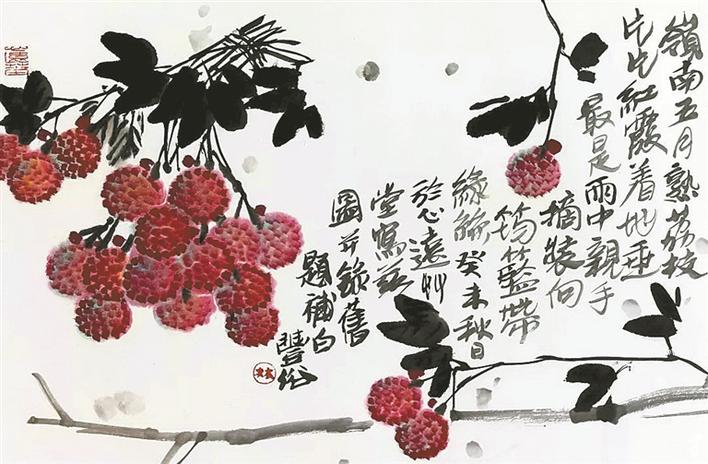 嶺南五月熟荔枝
片片紅霞着地垂
最是雨中親手
摘裝向
筠籃帶
緑絲癸未秋日
於心遠艸
堂寫茲
圖并錄舊
題補白